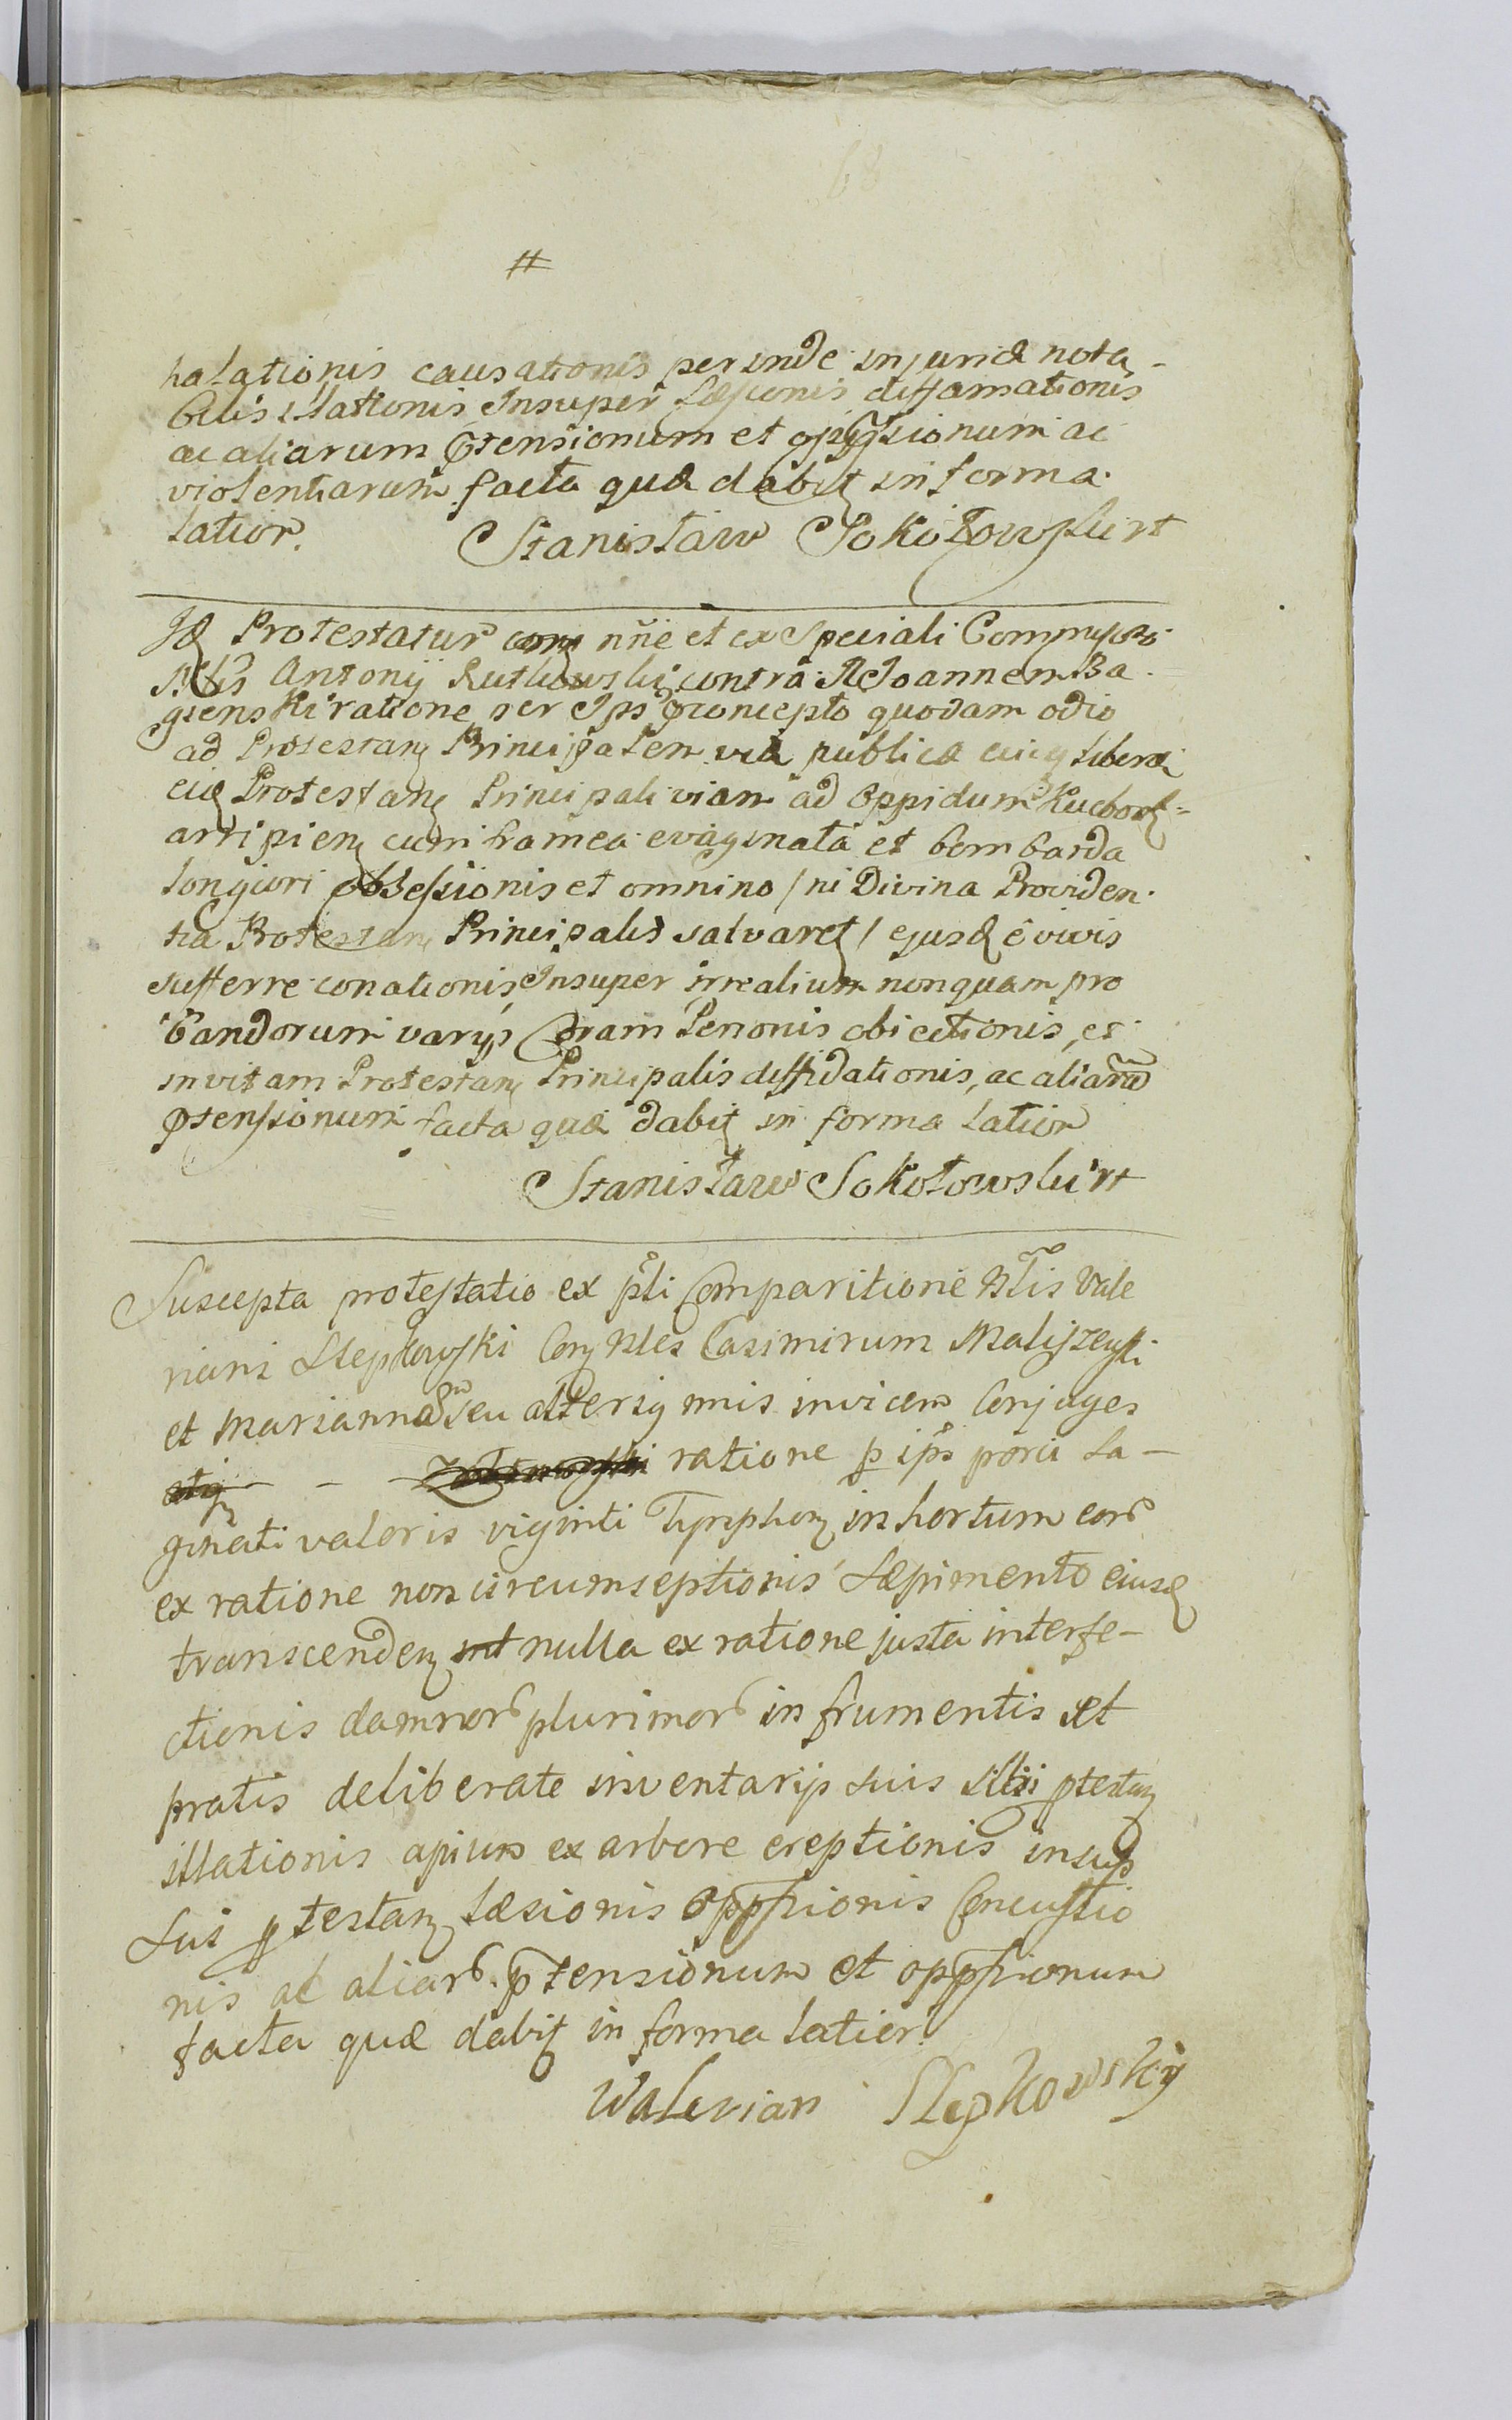 68
#
halationis causationis perinde injuriæ nota-
bilis illationis Insuper Læsionis diffamationis
ac aliarum ptensionum et oppssionum ac
violentiarum facta quæ dabit in forma
latior. Stanisław Sokołowski rt
Id Protestatur nne et ex Speciali
Nblis Antonij Rutkowski contra Joannem Ba-
gienski ratione per Ips pconcepto quodam odio
ad Protestan Principalem via publica libera
Protestan Principali viam ad Oppidum
arripien cum framea evaginata et bombarda
longiori obsessionis et omnino / ni Divina Providen-
tia Protestan Principalis salvaret / ejusd e vivis
sufferre conationis Insuper irrealium nonquam pro
bandorum varijs coram Personis obiectionis, et
in vitam Protestan Principalis diffidationis, ac aliarum
ptensionum facta quæ dabit in forma latior
Stanisław Sokołowski rt
Suscepta protestatio ex pli Comparitione Nblis Vale
riani Slepkowski Con Nbles Casimirum Maliszewski
et Mariannam seu alterius nnis invicem Conjuges
ratione p ips porci sa-
ginati valoris viginti Tymphon in hortum eor
ex ratione non circumseptionis sæpimento eiusd
transcenden nulla ex ratione justa interfe-
ctionis damnor plurimor in frumentis et
pratis deliberate inventarijs suis sibi ptestan
illationis apium ex arbore ereptionis insup
sui ptestan læsionis oppssionis Concussio
nis ac aliar ptensionum et oppssionum
facta quæ dabit in forma latior.
Walerian Slepkowskij